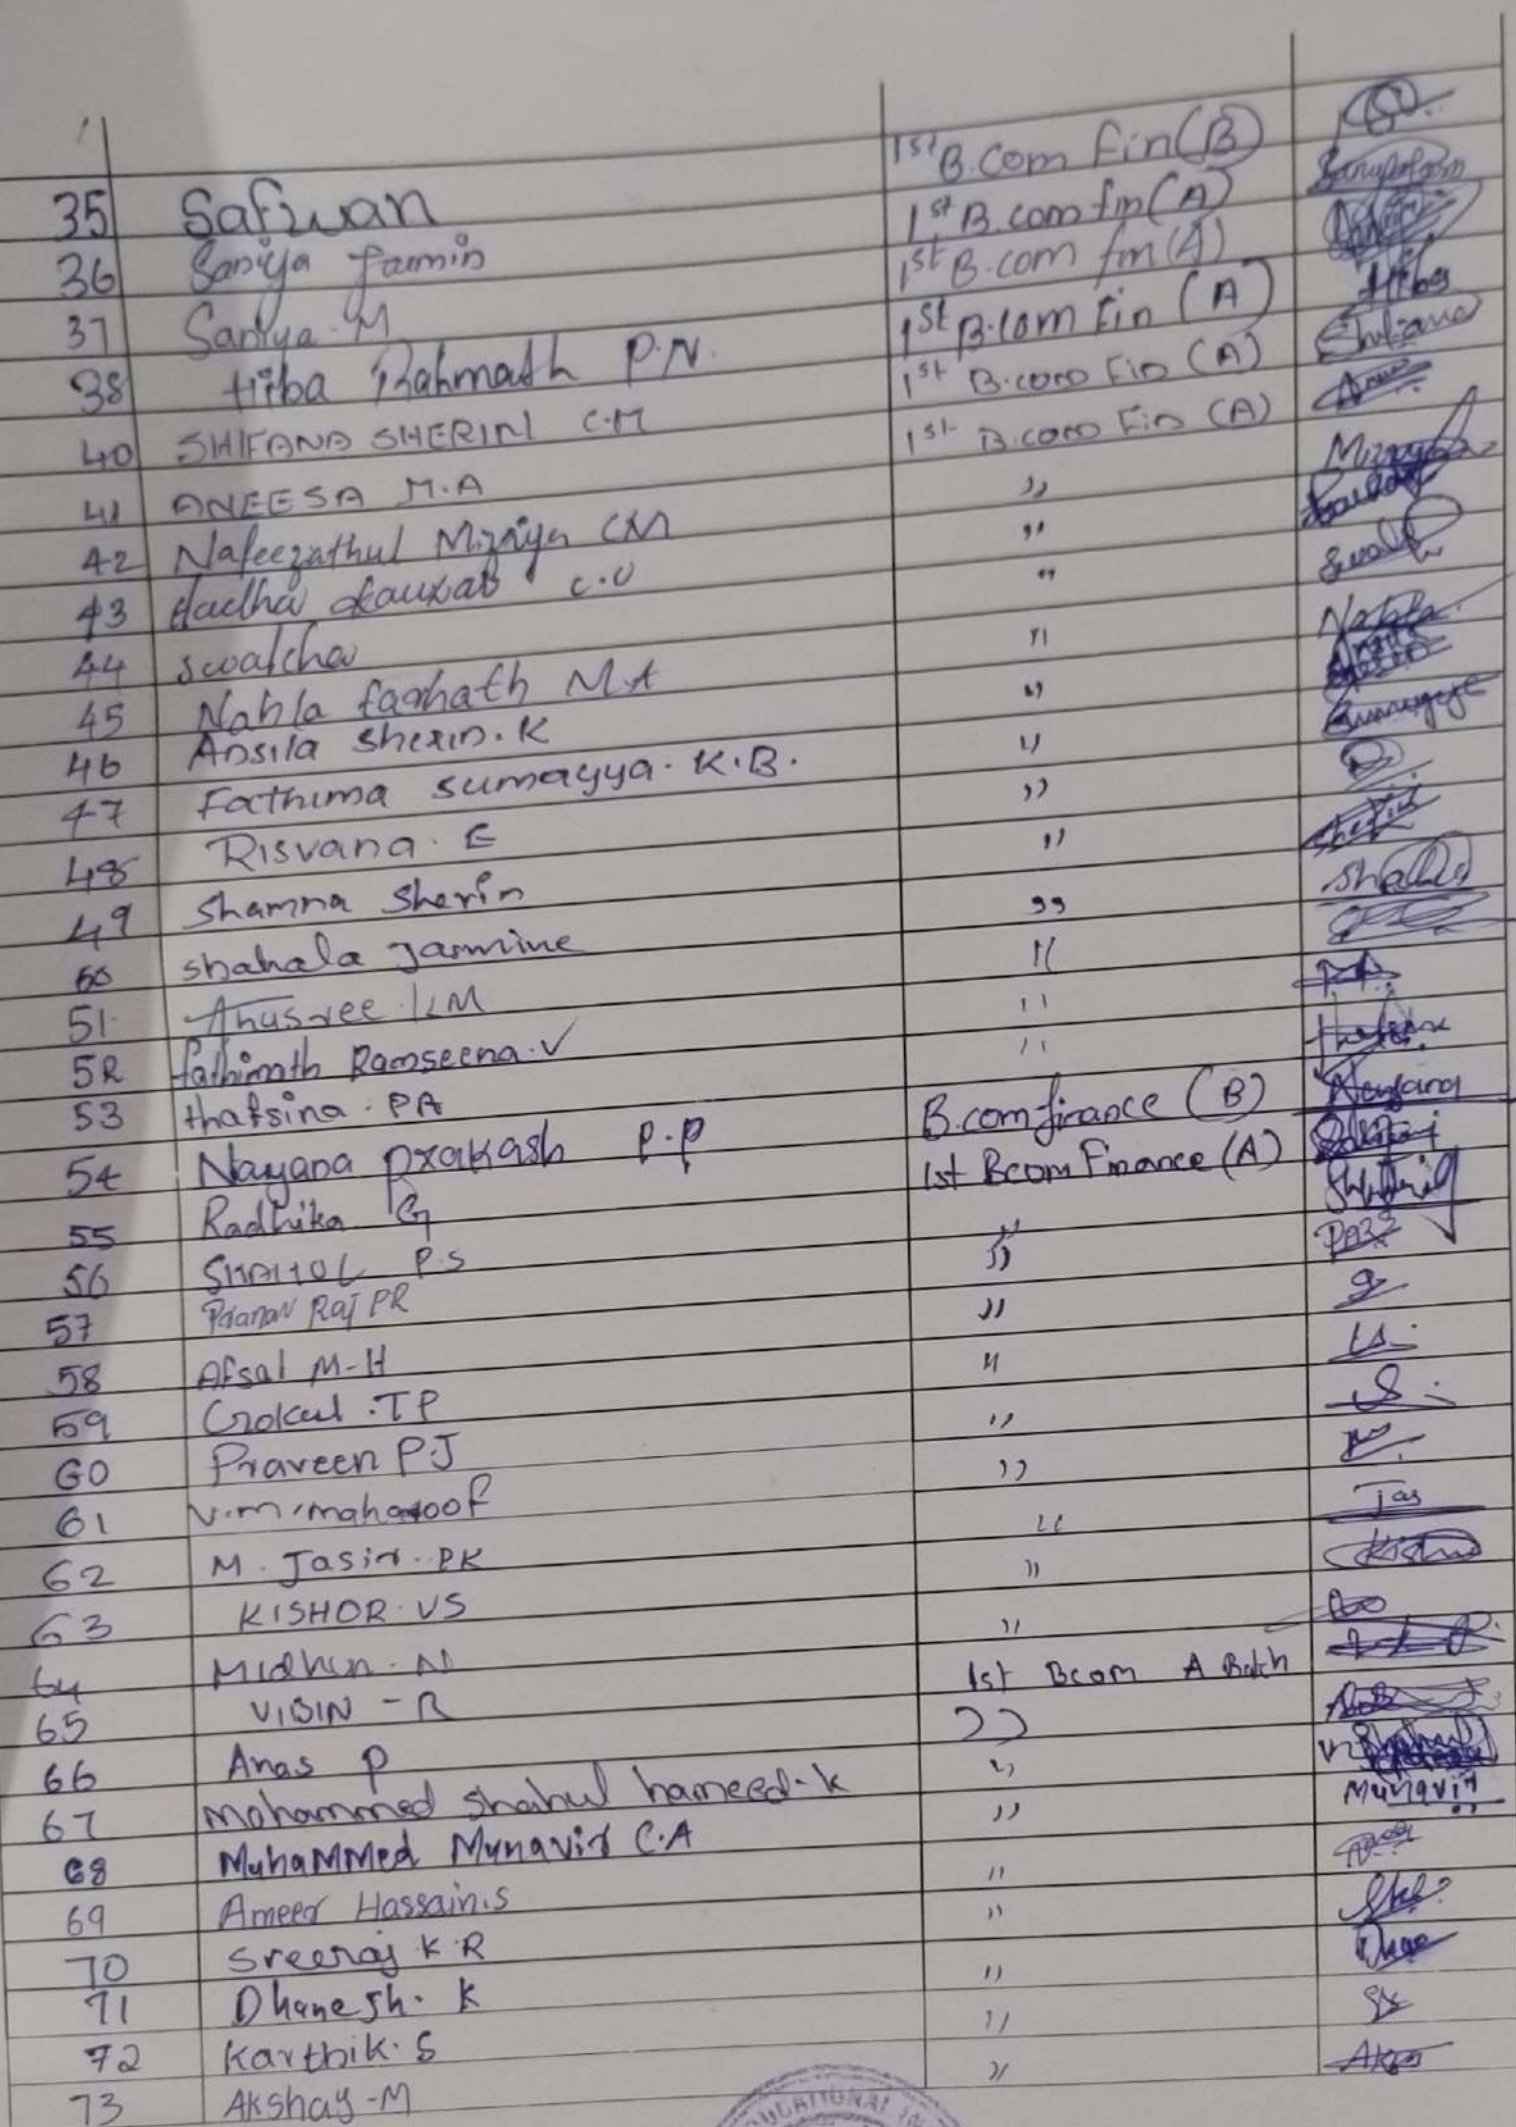 35 Safwan 1st B.Com Fin (B)
36 Saniya Jasmin 1st B.com fin (A)
37 Saniya. M 1st B.com fin (A)
38 Hiba Rahmath P.N. 1st B.com Fin (A) Hiba
40 SHIFANA SHERIN C.M 1st B.com Fin (A)
41 ANEESA M.A 1st B.com Fin (A)
42 Nafeezathul Mizriya CM ,,
43 Hadha Kauxab C.U ,,
44 swalcha ,,
45 Nahla farhath M.A ,, Nahla
46 Ansila Sherin. K ,,
47 Fathima sumayya. K.B. ,,
48 Risvana. E ,,
49 Shamna Sherin ,,
50 shahala Jasmine ,,
51. Anusree. KM ,,
52 fathimath Ramseena. V ,,
53 thafsina. PA ,,
54 Nayana prakash P.P B.com finance (B) Nayana
55 Radhika G 1st Bcom Finance (A)
56 SHAHUL P.S ,,
57 Pranav Raj PR ,,
58 Afsal M-H ,,
59 Gokul. TP ,,
60 Praveen P.J ,,
61 V.m. maharoof ,,
62 M. Jasir. PK ,, Jas
63 KISHOR. VS ,,
64 Midhun. N ,,
65 VIBIN - R 1st Bcom A Batch
66 Anas P ,,
67 Mohammed shahul hameed. k ,,
68 Muhammed Munavir C.A ,, Munavir
69 Ameer Hassain.s ,,
70 Sreeraj K.R ,,
71 Dhanesh. K ,,
72 Karthik. S ,,
73 Akshay-M ,,
EDUCATIONAL